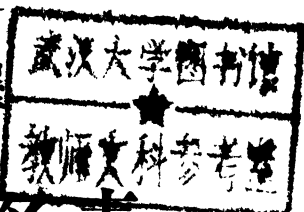 武汉大学图书馆
教师文科参考室